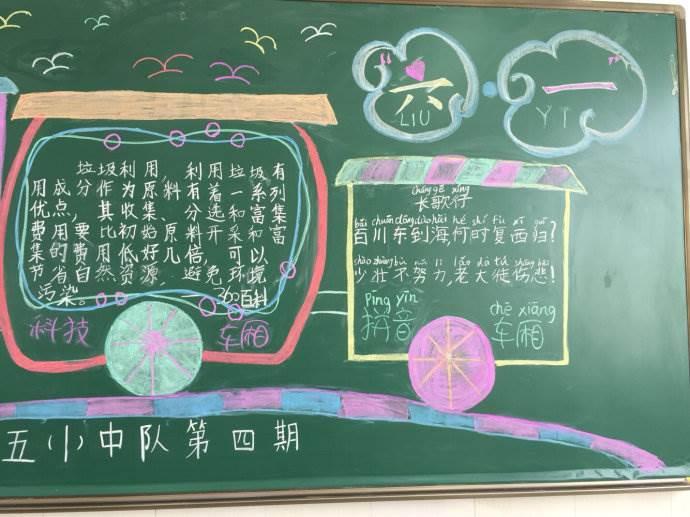 "六·一"
LIU YI
垃圾利用,利用垃圾有
用成分作为原料有着一系列
优点,其收集、分选和富集
费用要比初始原料开采和富
集的费用低好几倍,可以
节省自然资源,避免环境
污染。
——360百科
科技 车厢
cháng gē xíng
长歌行
bǎi chuān dōng dào hǎi hé shí fù xī guī
百川东到海,何时复西归?
少壮不努力,老大徒伤悲!
pīng yīn
拼音
chē xiāng
车厢
五(1)中队第四期